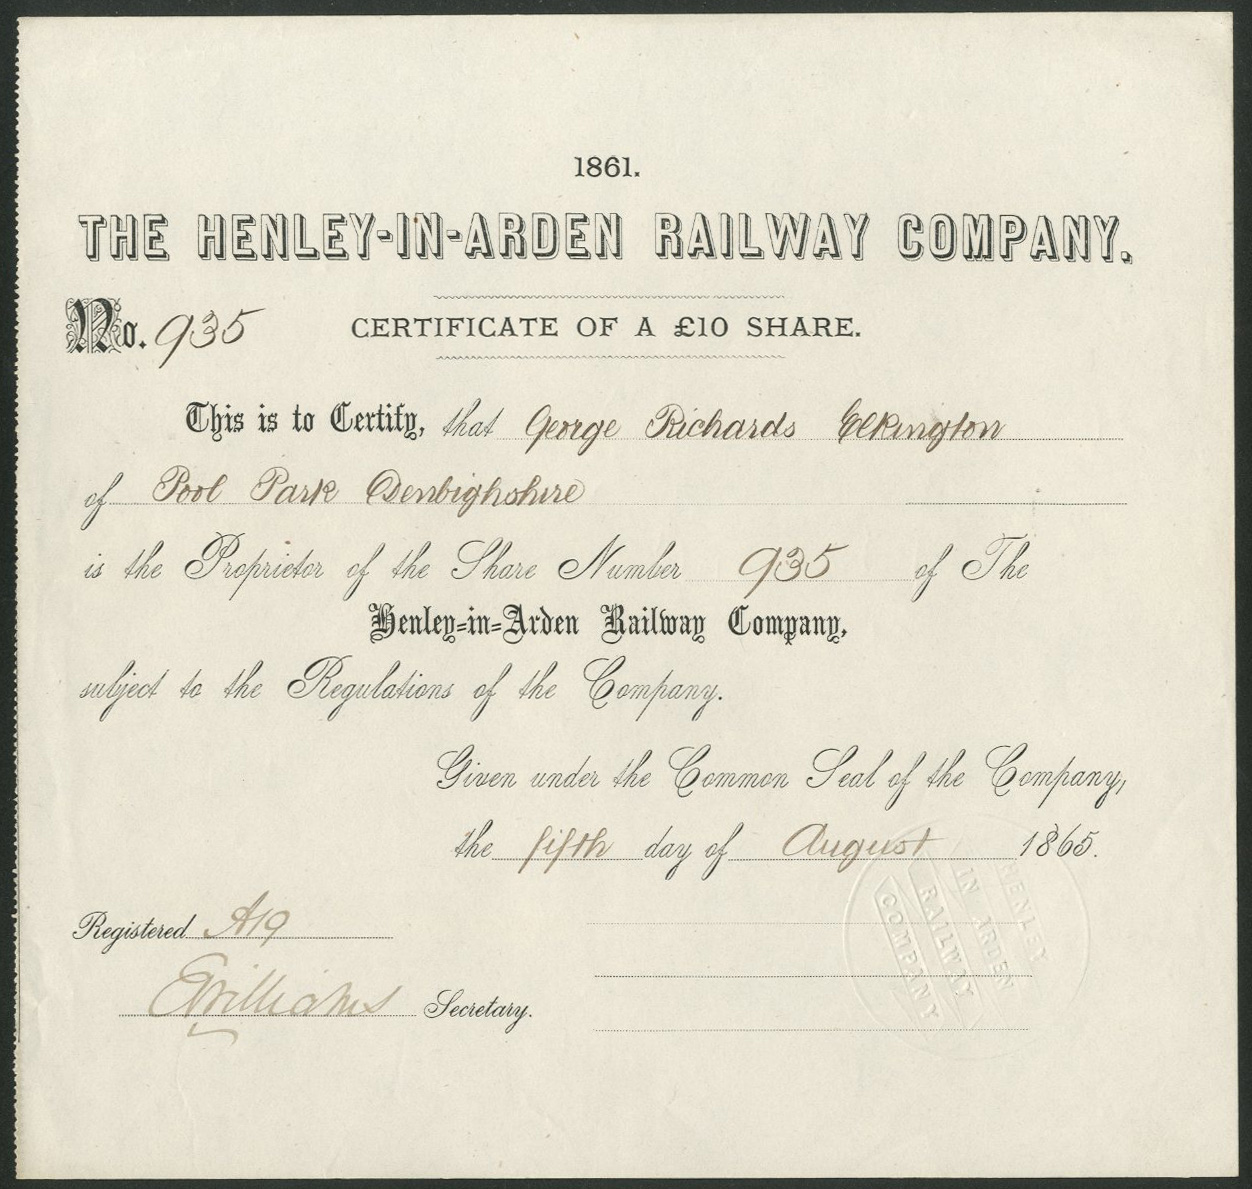 1861.
THE HENLEY-IN-ARDEN RAILWAY COMPANY.
No. 935
CERTIFICATE OF A £10 SHARE.
This is to Certify, that George Richards Elkington
of Pool Park Denbighshire
is the Proprietor of the Share Number 935 of The
Henley-in-Arden Railway Company,
subject to the Regulations of the Company.
Given under the Common Seal of the Company,
the fifth day of August 1865.
Registered A19
EWilliams Secretary.
HENLEY
IN ARDEN
RAILWAY
COMPANY